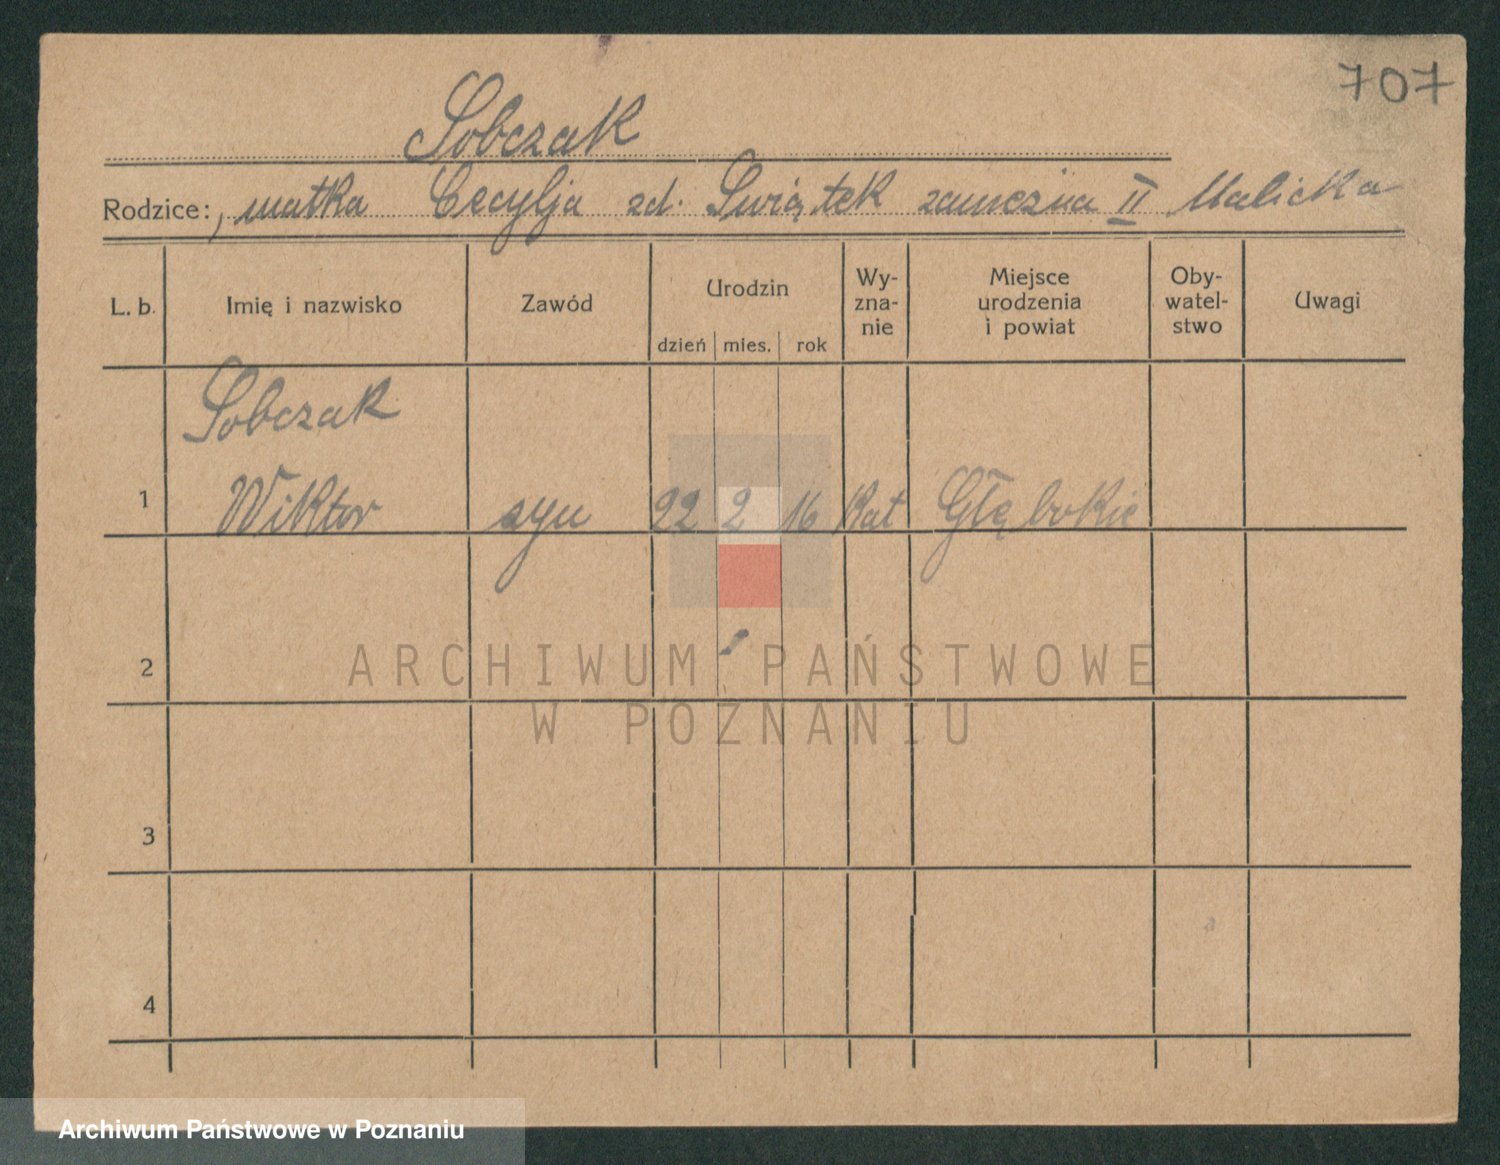 707
Sobczak
Rodzice:, matka Cecylja zd. Świątek zamężna II Malicka
L. b. Imię i nazwisko Zawód Urodzin dzień mies. rok Wy-zna-nie Miejsce urodzenia i powiat Oby-watel-stwo Uwagi
Sobczak
1 Wiktor syn 22 2 16 kat Głębokie
2
ARCHIWUM PAŃSTWOWE
W POZNANIU
3
4
Archiwum Państwowe w Poznaniu